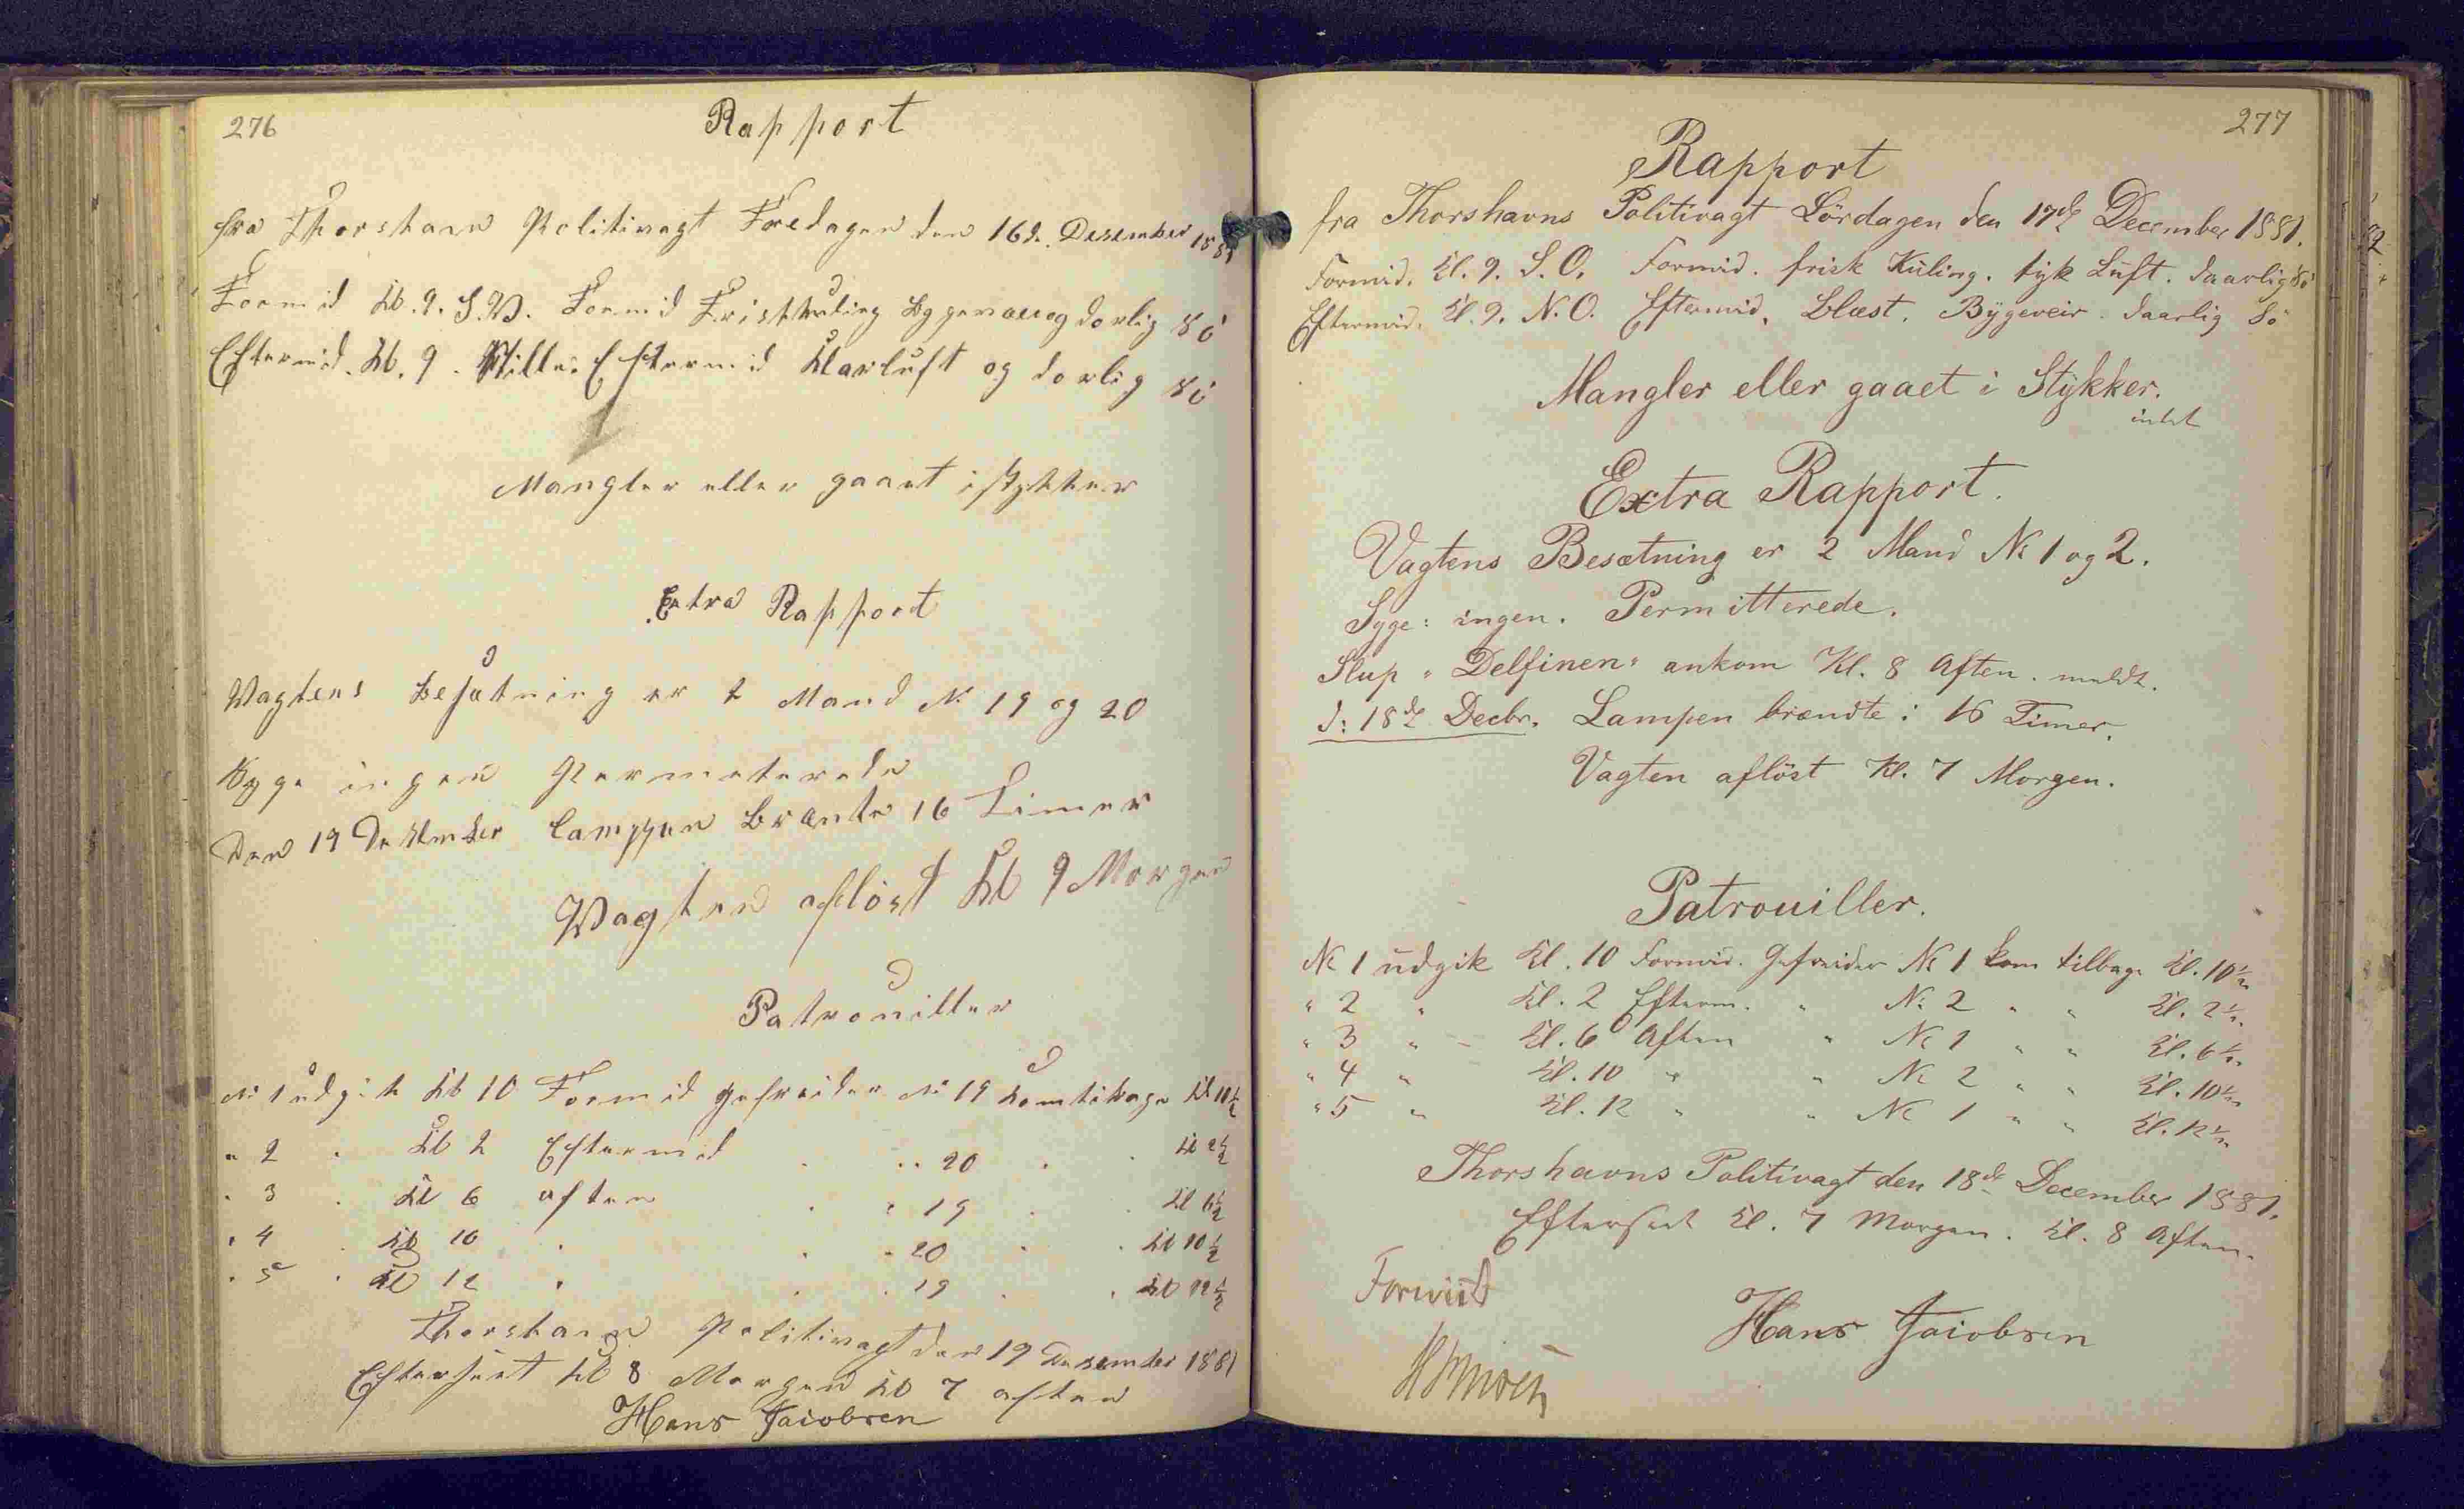 276
Rapport
fra Thorshavn Politivagt Fredagen den 16d. Desember 1881
Formid Kl. 9. S.V. Formid Friskkuling Bygevær og dorlig Sö
Eftermid. Kl. 9. Stille. Eftermid Klarluft og dorlig Sö
Mangler eller gaaet i stykker
Extra Rapport
Wagtens Besætning er 2 Mand N. 19 og 20
Syge ingen Permeterede
Den 19 Desember Lamppen Brænte 16 Timer
Wagten aflöst Kl 9 Morgen
Patrouiller
N. 1 udgik Kl 10 Formid gefreider N. 19 Kom tilbage Kl 10½
" 2 " Kl 2 Eftermid " " 20 " " Kl 2½
" 3 " Kl 6 aften " " 19 " " Kl 6½
" 4 " Kl 10 " " " 20 " " Kl 10½
" 5 " Kl 12 " " " 19 " " Kl 12½
Thorshavn Politivagt den 19 Desember 1881
Efterseet Kl 8 Morgen Kl 7 aften
Hans Jacobsen
277
Rapport
fra Thorshavns Politivagt Lördagen den 17de December 1881.
Formid. Kl. 9. S.O. Formid. frisk Kuling. tyk Luft. daarlig Sö
Eftermid. Kl. 9. N.O. Eftermid. Blæst. Bygeveir. daarlig Sö
Mangler eller gaaet i Stykker.
intet
Extra Rapport.
Vagtens Besætning er 2 Mand No 1 og 2.
Syge: ingen. Permitterede.
Slup "Delfinen" ankom Kl. 8 Aften. meldt.
d: 18de Decbr. Lampen brændte i 16 Timer.
Vagten aflöst Kl. 7 Morgen.
Patrouiller.
No 1 udgik Kl. 10 Formid. Gefreider No 1 kom tilbage Kl. 10½
" 2 " Kl. 2 Efterm. " No 2 " " Kl. 2½
" 3 " Kl. 6 Aften " No 1 " " Kl. 6½
" 4 " Kl. 10 " " No 2 " " Kl. 10½
" 5 " Kl. 12 " " No 1 " " Kl. 12½
Thorshavns Politivagt den 18de December 1881.
Efterseet Kl. 7 Morgen. Kl. 8 Aften.
Forviist
Hans Jacobsen